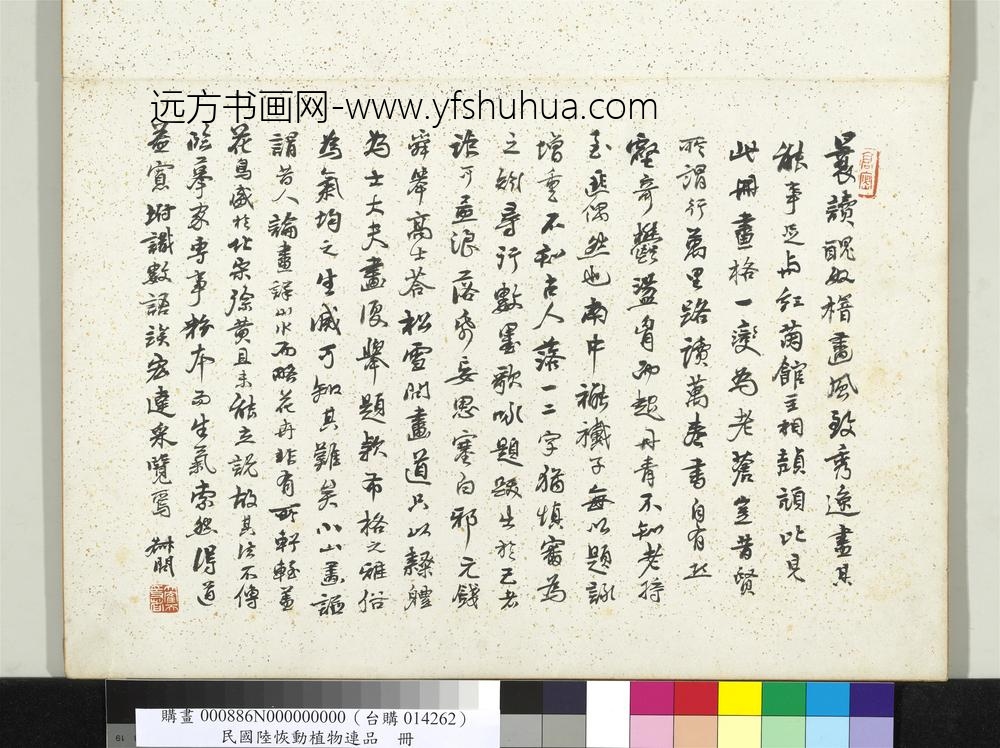 远方书画网-www.yfshuhua.com
曩讀醜奴楷畫風致秀逸盡其
能事足与紅蘭館主相頡頏比見
此冊畫格一變為老蒼豈昔賢
所謂行萬里路讀萬卷書自有
壑奇鬱盪胷而起丹青不知老將
至匪偶然也南中襶子每以題詠
增重不知古人落一二字猶慎審為
之尋行數墨歌咏題跋出於己者
浪落安思蹇白邪元錢
舜舉高士答松雪問畫道只以隸體
為士大夫畫復舉題款布格之雅俗
為氣均之生滅可知其難矣小山畫
謂昔人論畫詳山水而略花卉非有所軒輊蓋
花鳥盛於北宋徐黃且未能立說故其法不傳
臨摹家專事粉本而生氣索然得道
益實坿識數語諉宏達采覽焉
購畫 000886N000000000（台購 014262）
民國陸恢動植物連品 冊
19